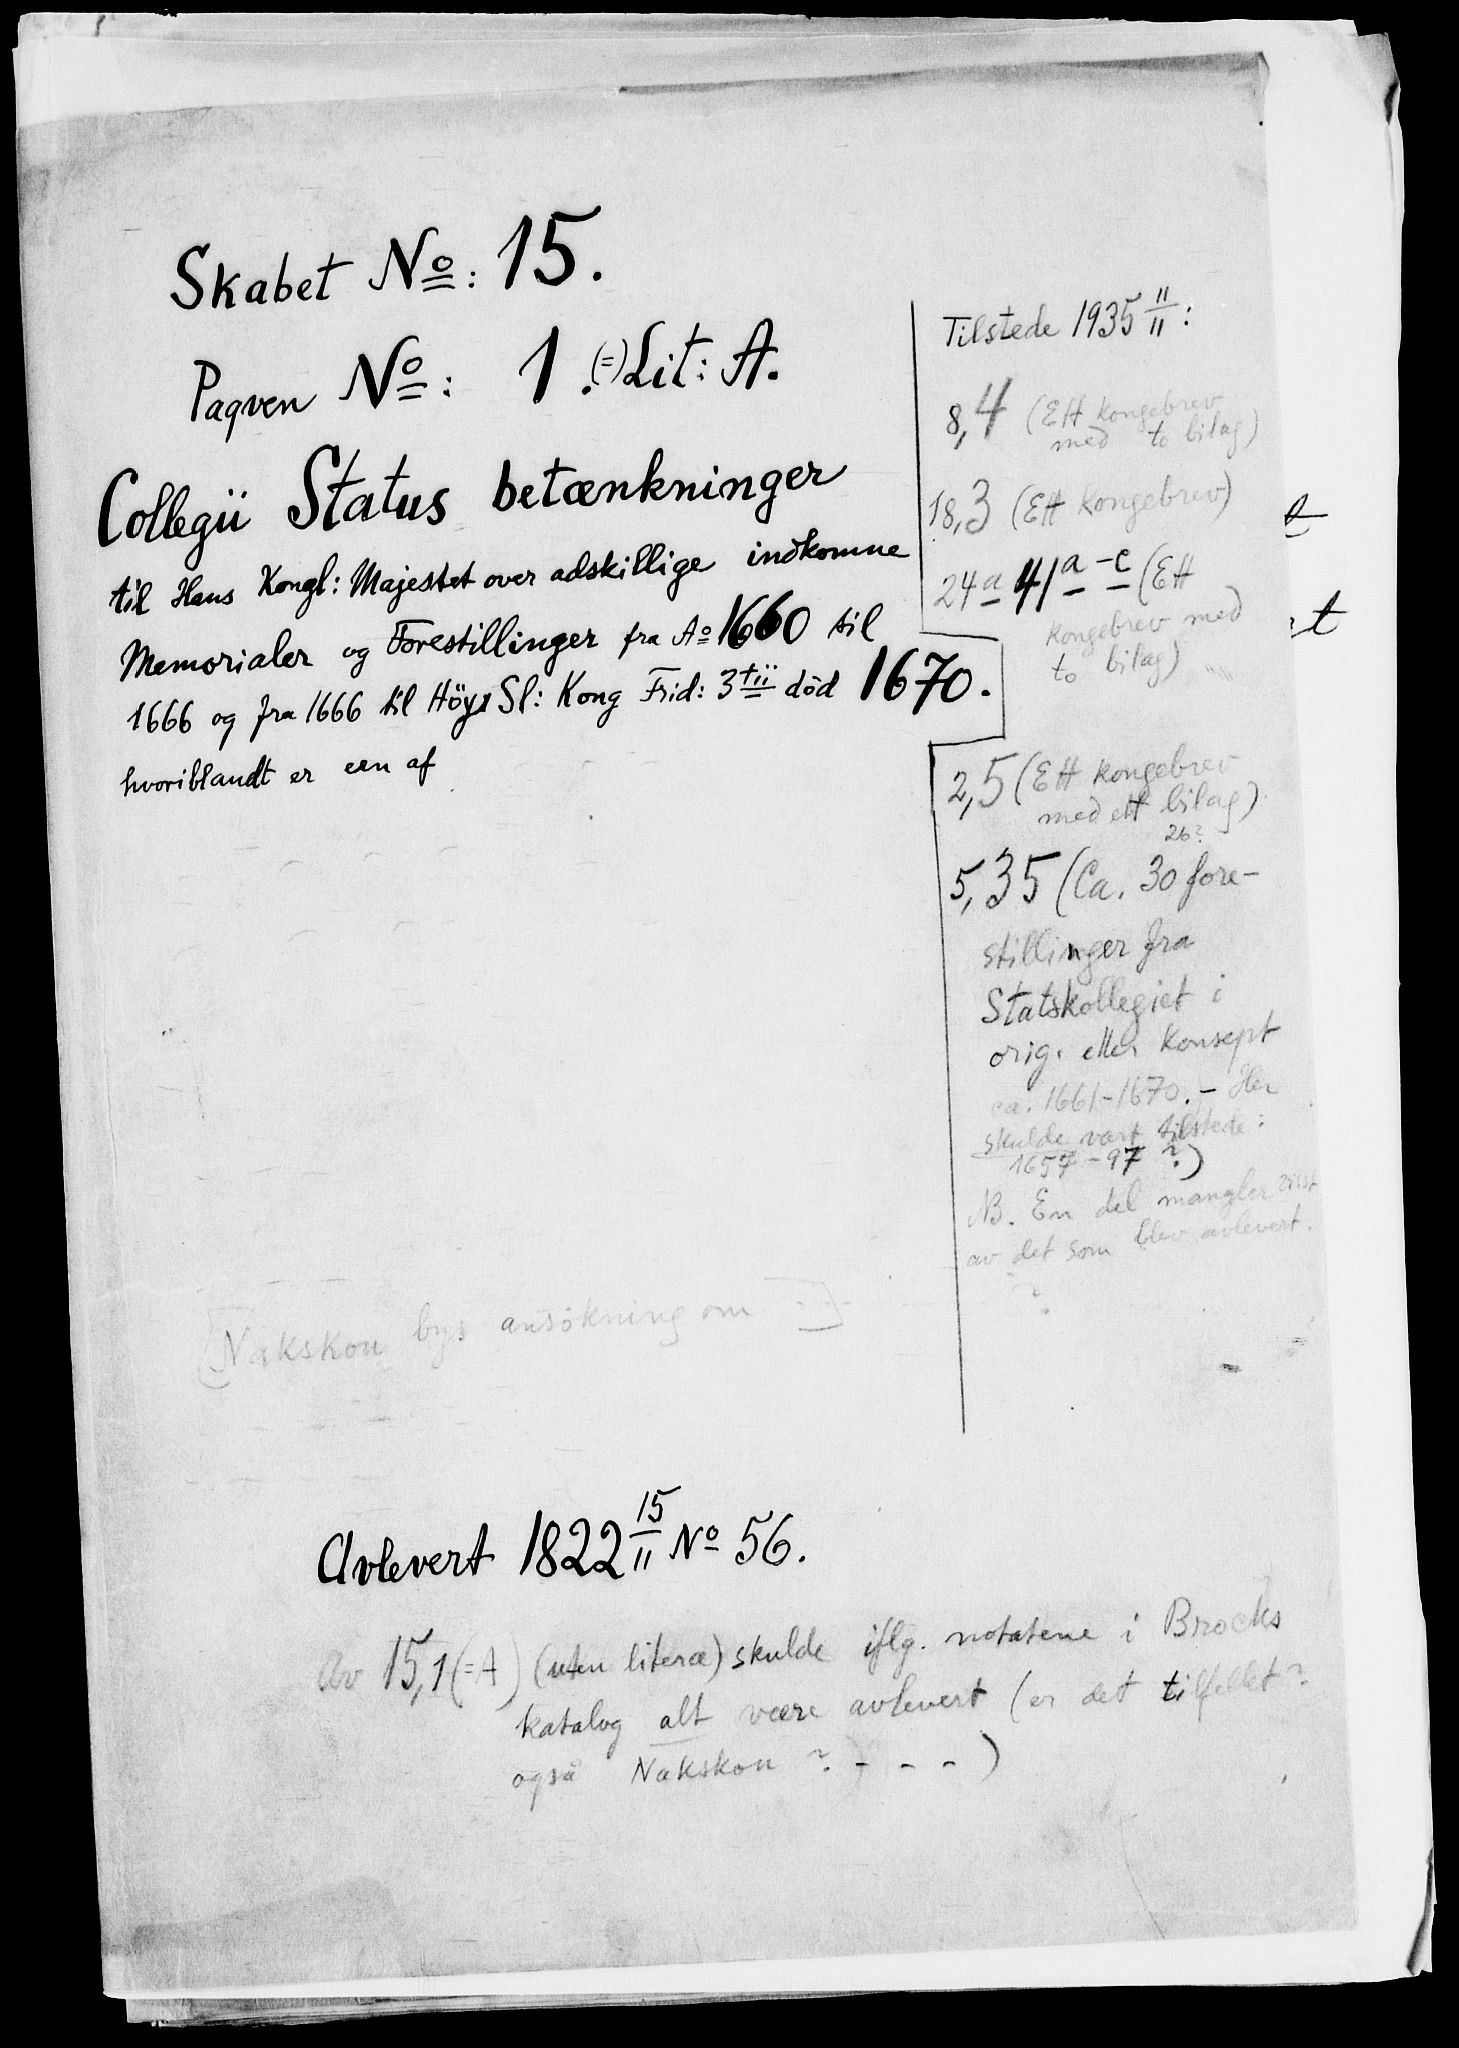 Skabet No: 15.
Paqven No: 1. (=) Lit: A.
Collegii Status betænkninger
til Hans Kongl: Majestet over adskillige indkomne
Memorialer og Forestillinger fra Ao 1660 til
1666 og fra 1666 til Høys Sl: Kong Frid: 3tii död 1670.
hvoriblandt er een af
[Nakskou bys ansökning om - -]
Tilstede 1935 11/11:
8,4 (Ett kongebrev
med to bilag)
18,3 (Ett kongebrev)
24a 41a-c (Ett
kongebrev med
to bilag)
2,5 (Ett kongebrev
med ett bilag)
26?
5,35 (Ca. 30 fore-
stillinger fra
Statskollegiet i
orig. eller konsept
ca. 1661-1670. - Her
skulde vært tilstede:
1657-97 ?)
NB. En del mangler visst
av det som blev avlevert.
?
Avlevert 1822 15/11 No 56.
Av 15,1 (=A) (uten litera) skulde iflg. notatene i Brocks
katalog alt være avlevert (er det tilfellet?
også Nakskou ? - - -)